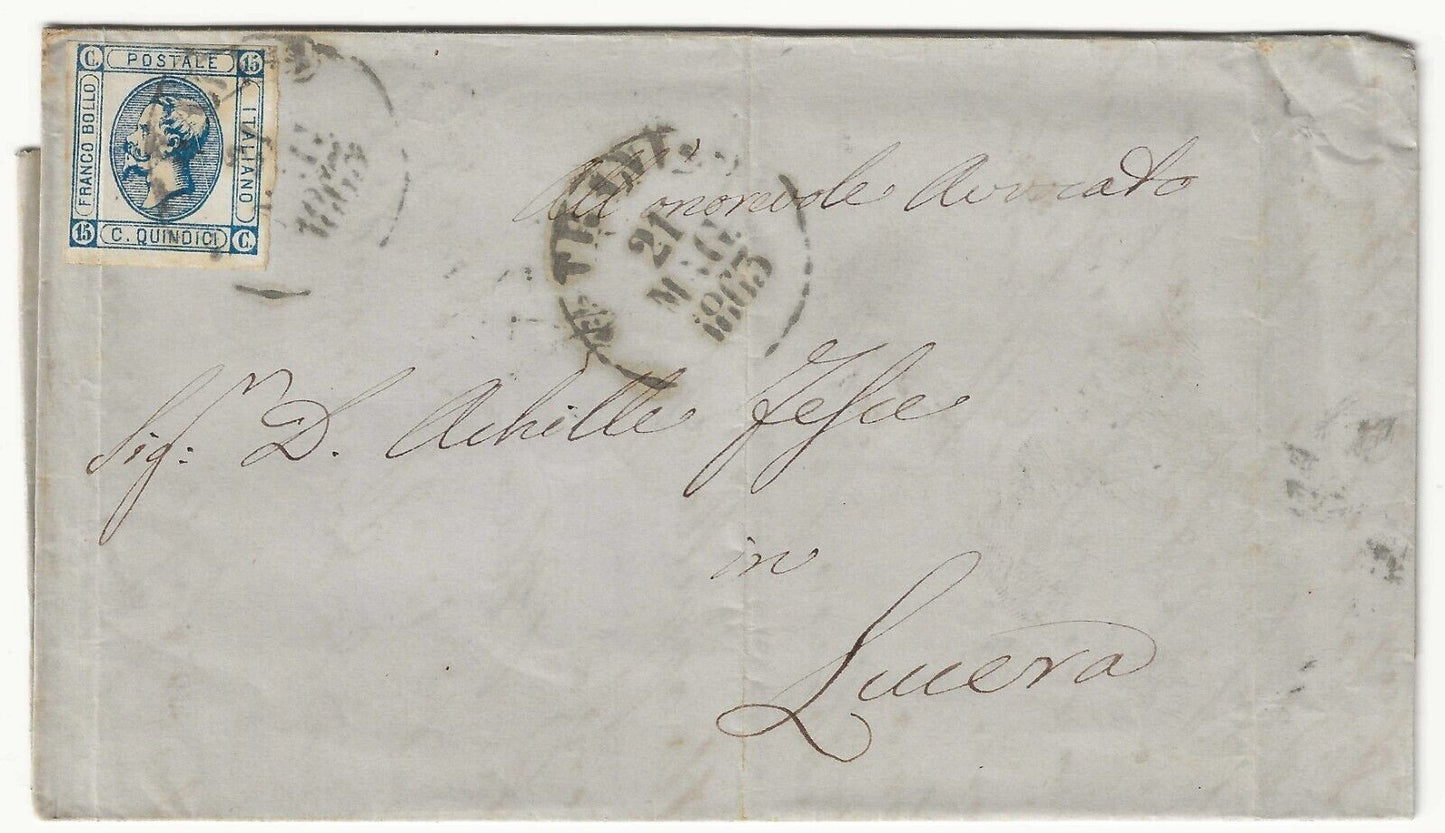 C. POSTALE 15
FRANCO BOLLO
ITALIANO
15 C. QUINDICI C.
1863
TRANI
21
MAG
1863
All'onorevole Avvocato
Sig.r D. Achille
in
Lucera